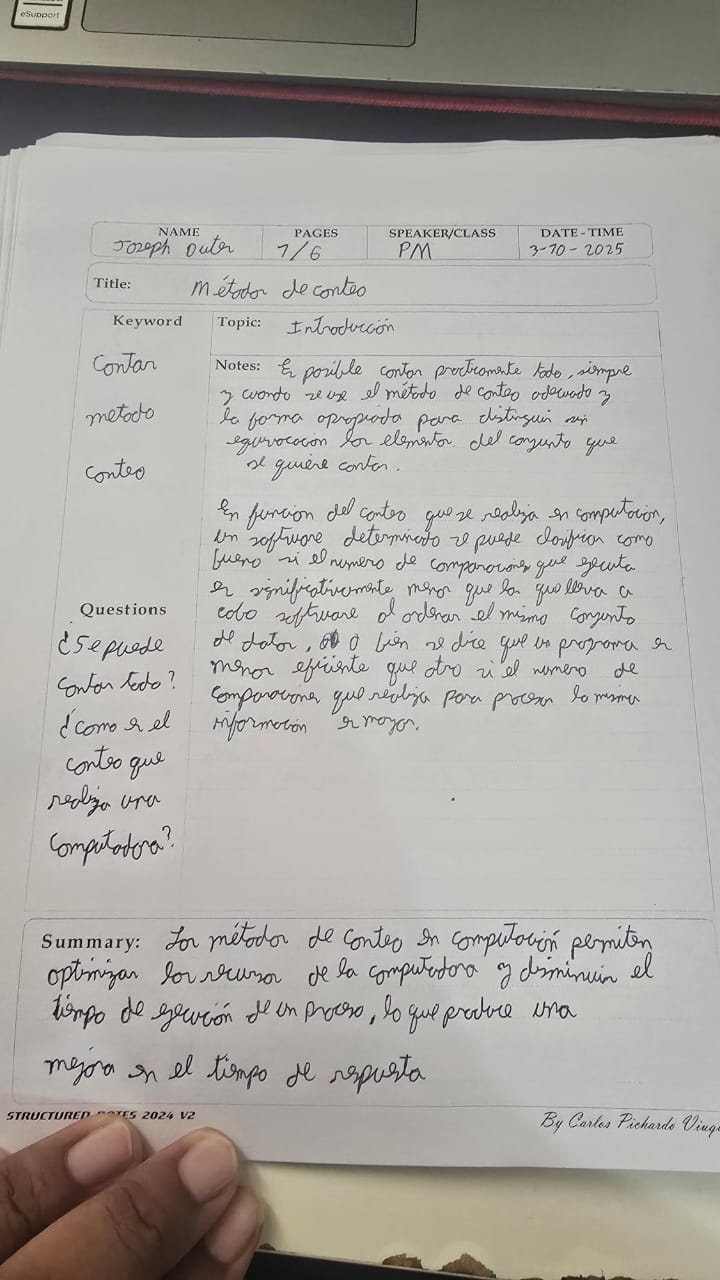 eSupport
NAME PAGES SPEAKER/CLASS DATE - TIME
Joseph 1/6 PM 3-10-2025
Title: Métodos de conteo
Keyword
Contar
metodo
conteo
Topic: Introducción
Notes: Es posible contar practicamente todo, siempre
y cuando se use el método de conteo adecuado y
la forma apropiada para distinguir sin
equivocación los elementos del conjunto que
se quiere contar.
En funcion del conteo que se realiza en computación,
un software determinado se puede clasificar como
bueno si el numero de comparaciones que ejecuta
es significativamente menor que las que lleva a
cabo software al ordenar el mismo conjunto
de datos, o bien se dice que un programa es
menos eficiente que otro si el numero de
comparaciones que realiza para procesar la misma
información es mayor.
Questions
¿Se puede
contar todo?
¿como es el
conteo que
realiza una
computadora?
Summary: Los métodos de conteo en computación permiten
optimizar los recursos de la computadora y disminuir el
tiempo de ejecución de un proceso, lo que produce una
mejora en el tiempo de respuesta
STRUCTURED NOTES 2024 V2
By Carlos Pichardo Viuq